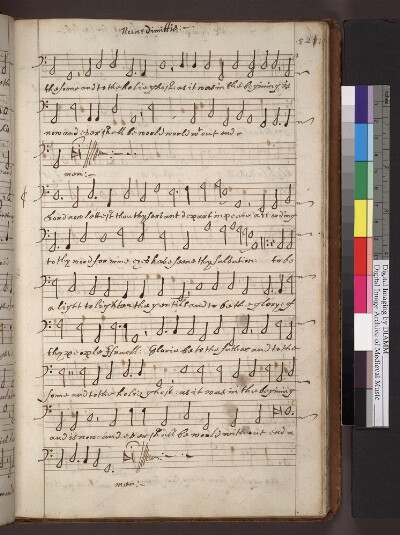 Nunc dimittis:
521
the sonne and to the holie ghost: as it was in the begining &
now and ever shall be world world wt out end a
men:
Lord now lettest thou thy servant depart in peace according
to thy word for mine eyes have seene thy salvation to be
a light to lighten the gentills and to be the glory of
thy people Israell: Glorie be to the father and to the
sonne and to the holie ghost: as it was in the begining
and is now: and ever shall be world without end a
men:
Digital Imaging by DIAMM
Digital Image Archive of Medieval Music